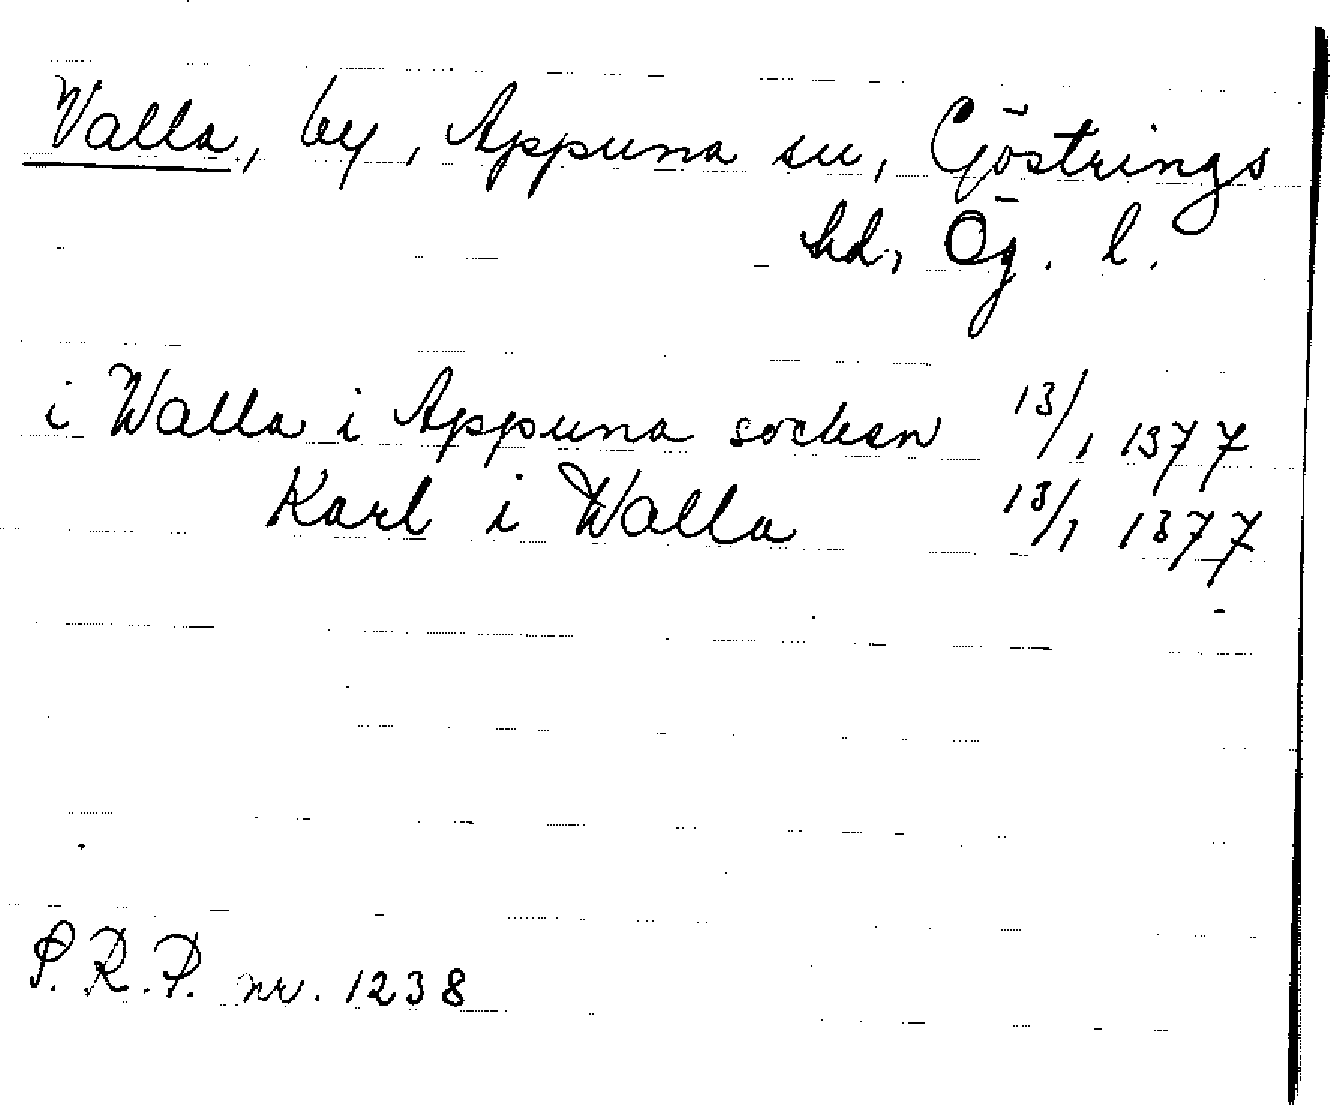 Valla, by, Appuna sn, Göstrings
hd, Ög. l.
i Walla i Appuna socken 13/1 1377
Karl i Walla 13/1 1377
S.R.P. nr. 1238